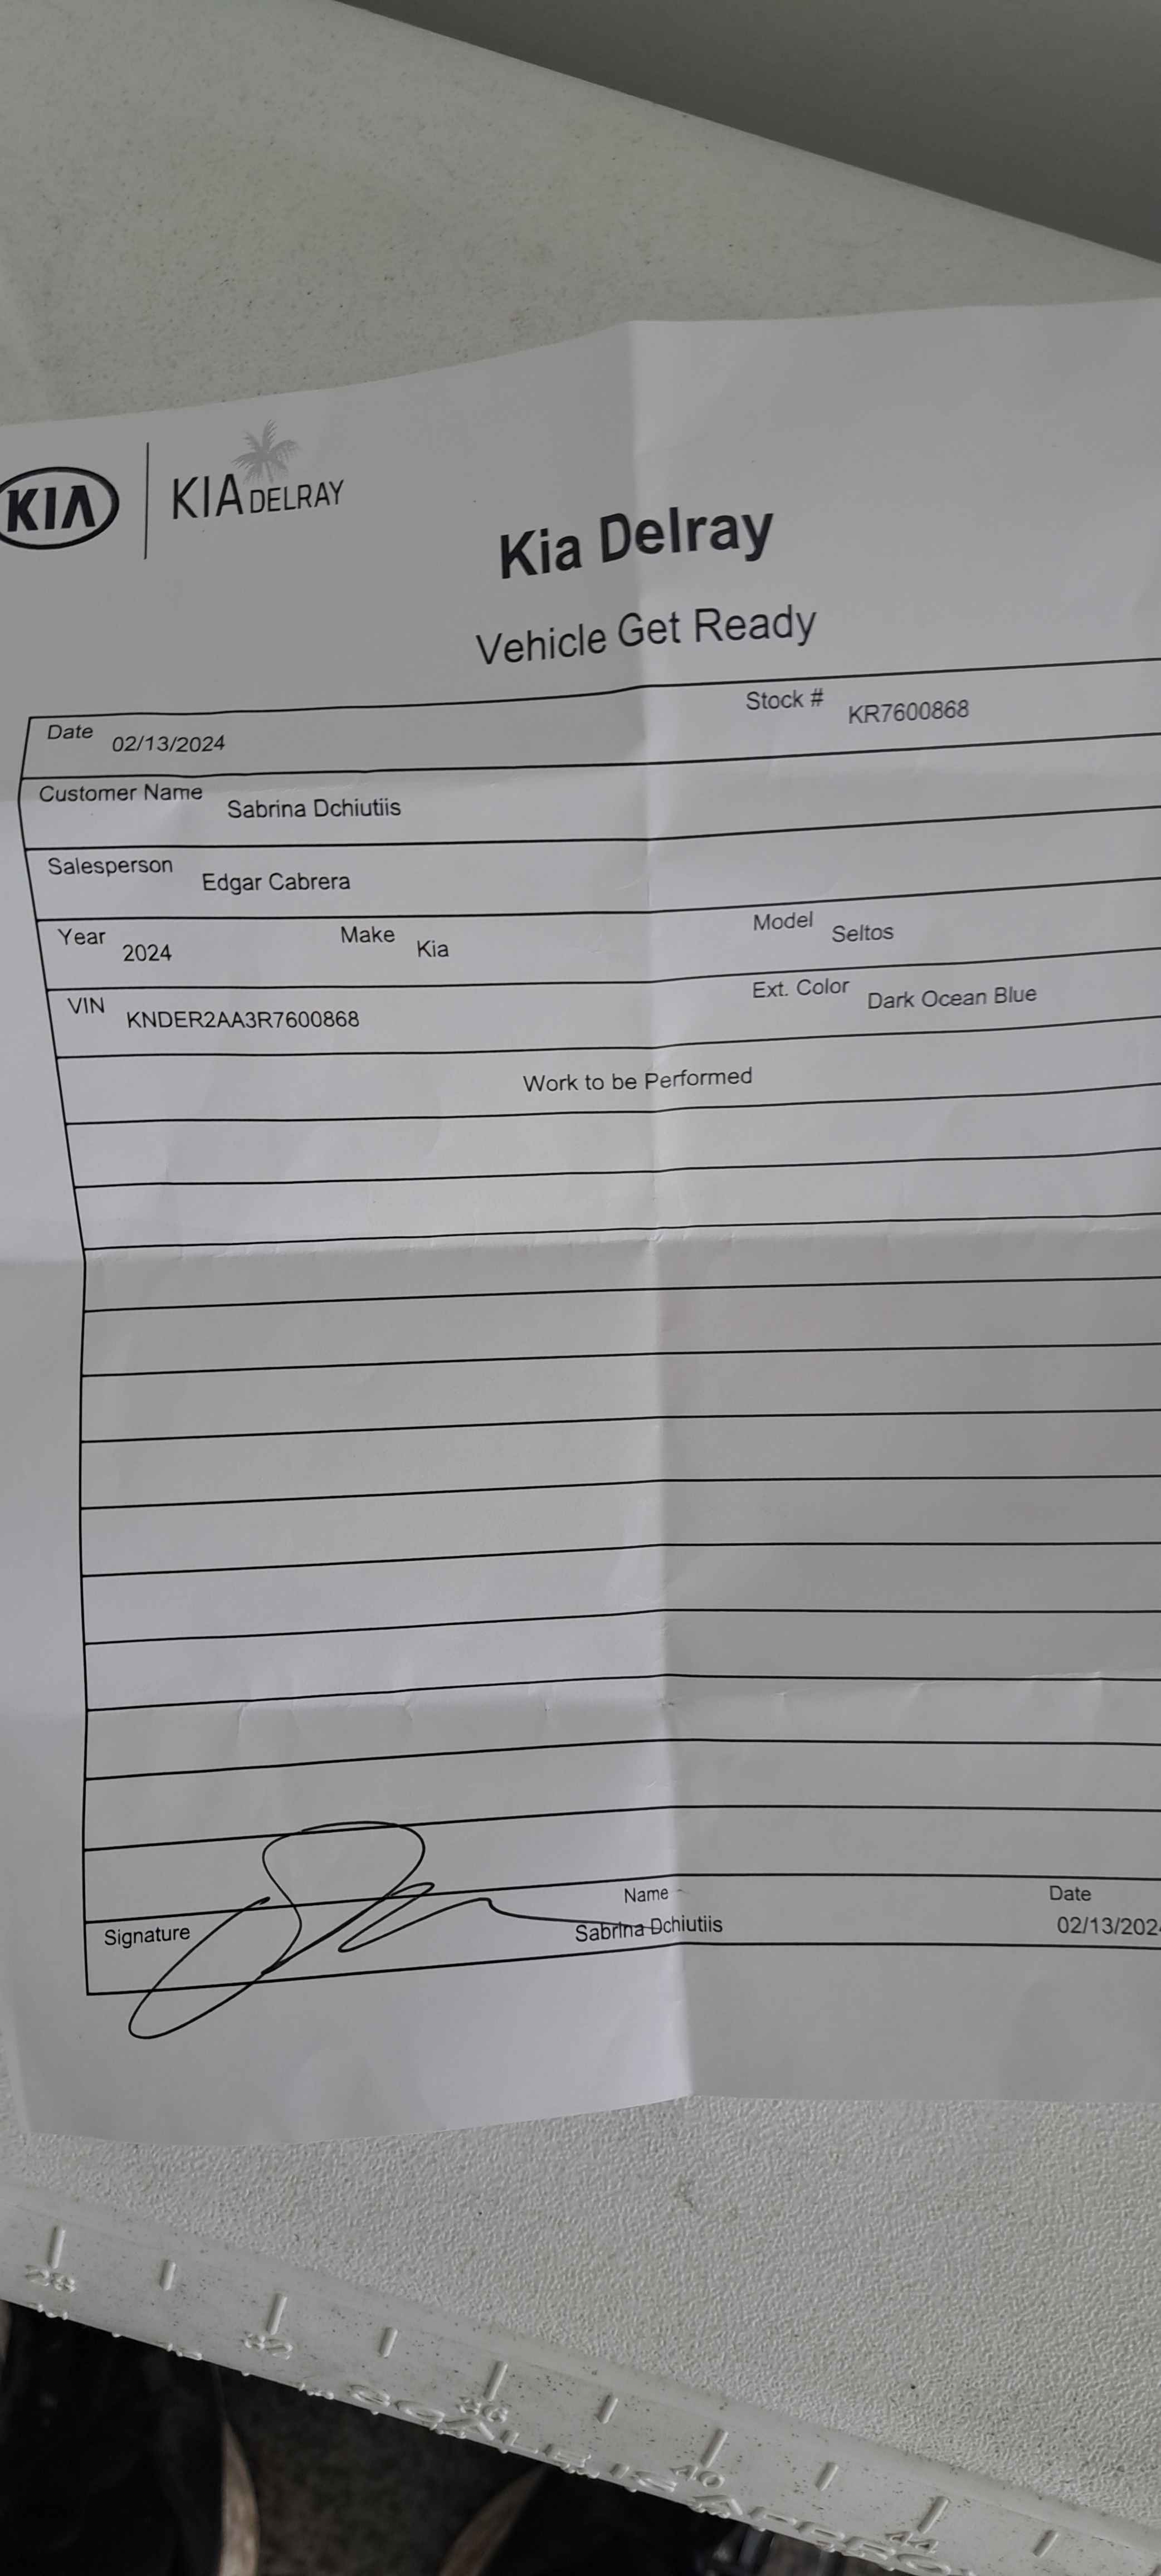 KIA KIA DELRAY
Kia Delray
Vehicle Get Ready
Date 02/13/2024 Stock # KR7600868
Customer Name Sabrina Dchiutiis
Salesperson Edgar Cabrera
Year 2024 Make Kia Model Seltos
VIN KNDER2AA3R7600868 Ext. Color Dark Ocean Blue
Work to be Performed
Signature Name Sabrina Dchiutiis Date 02/13/202
28 32 36 40 44
SCALE IS APPRO